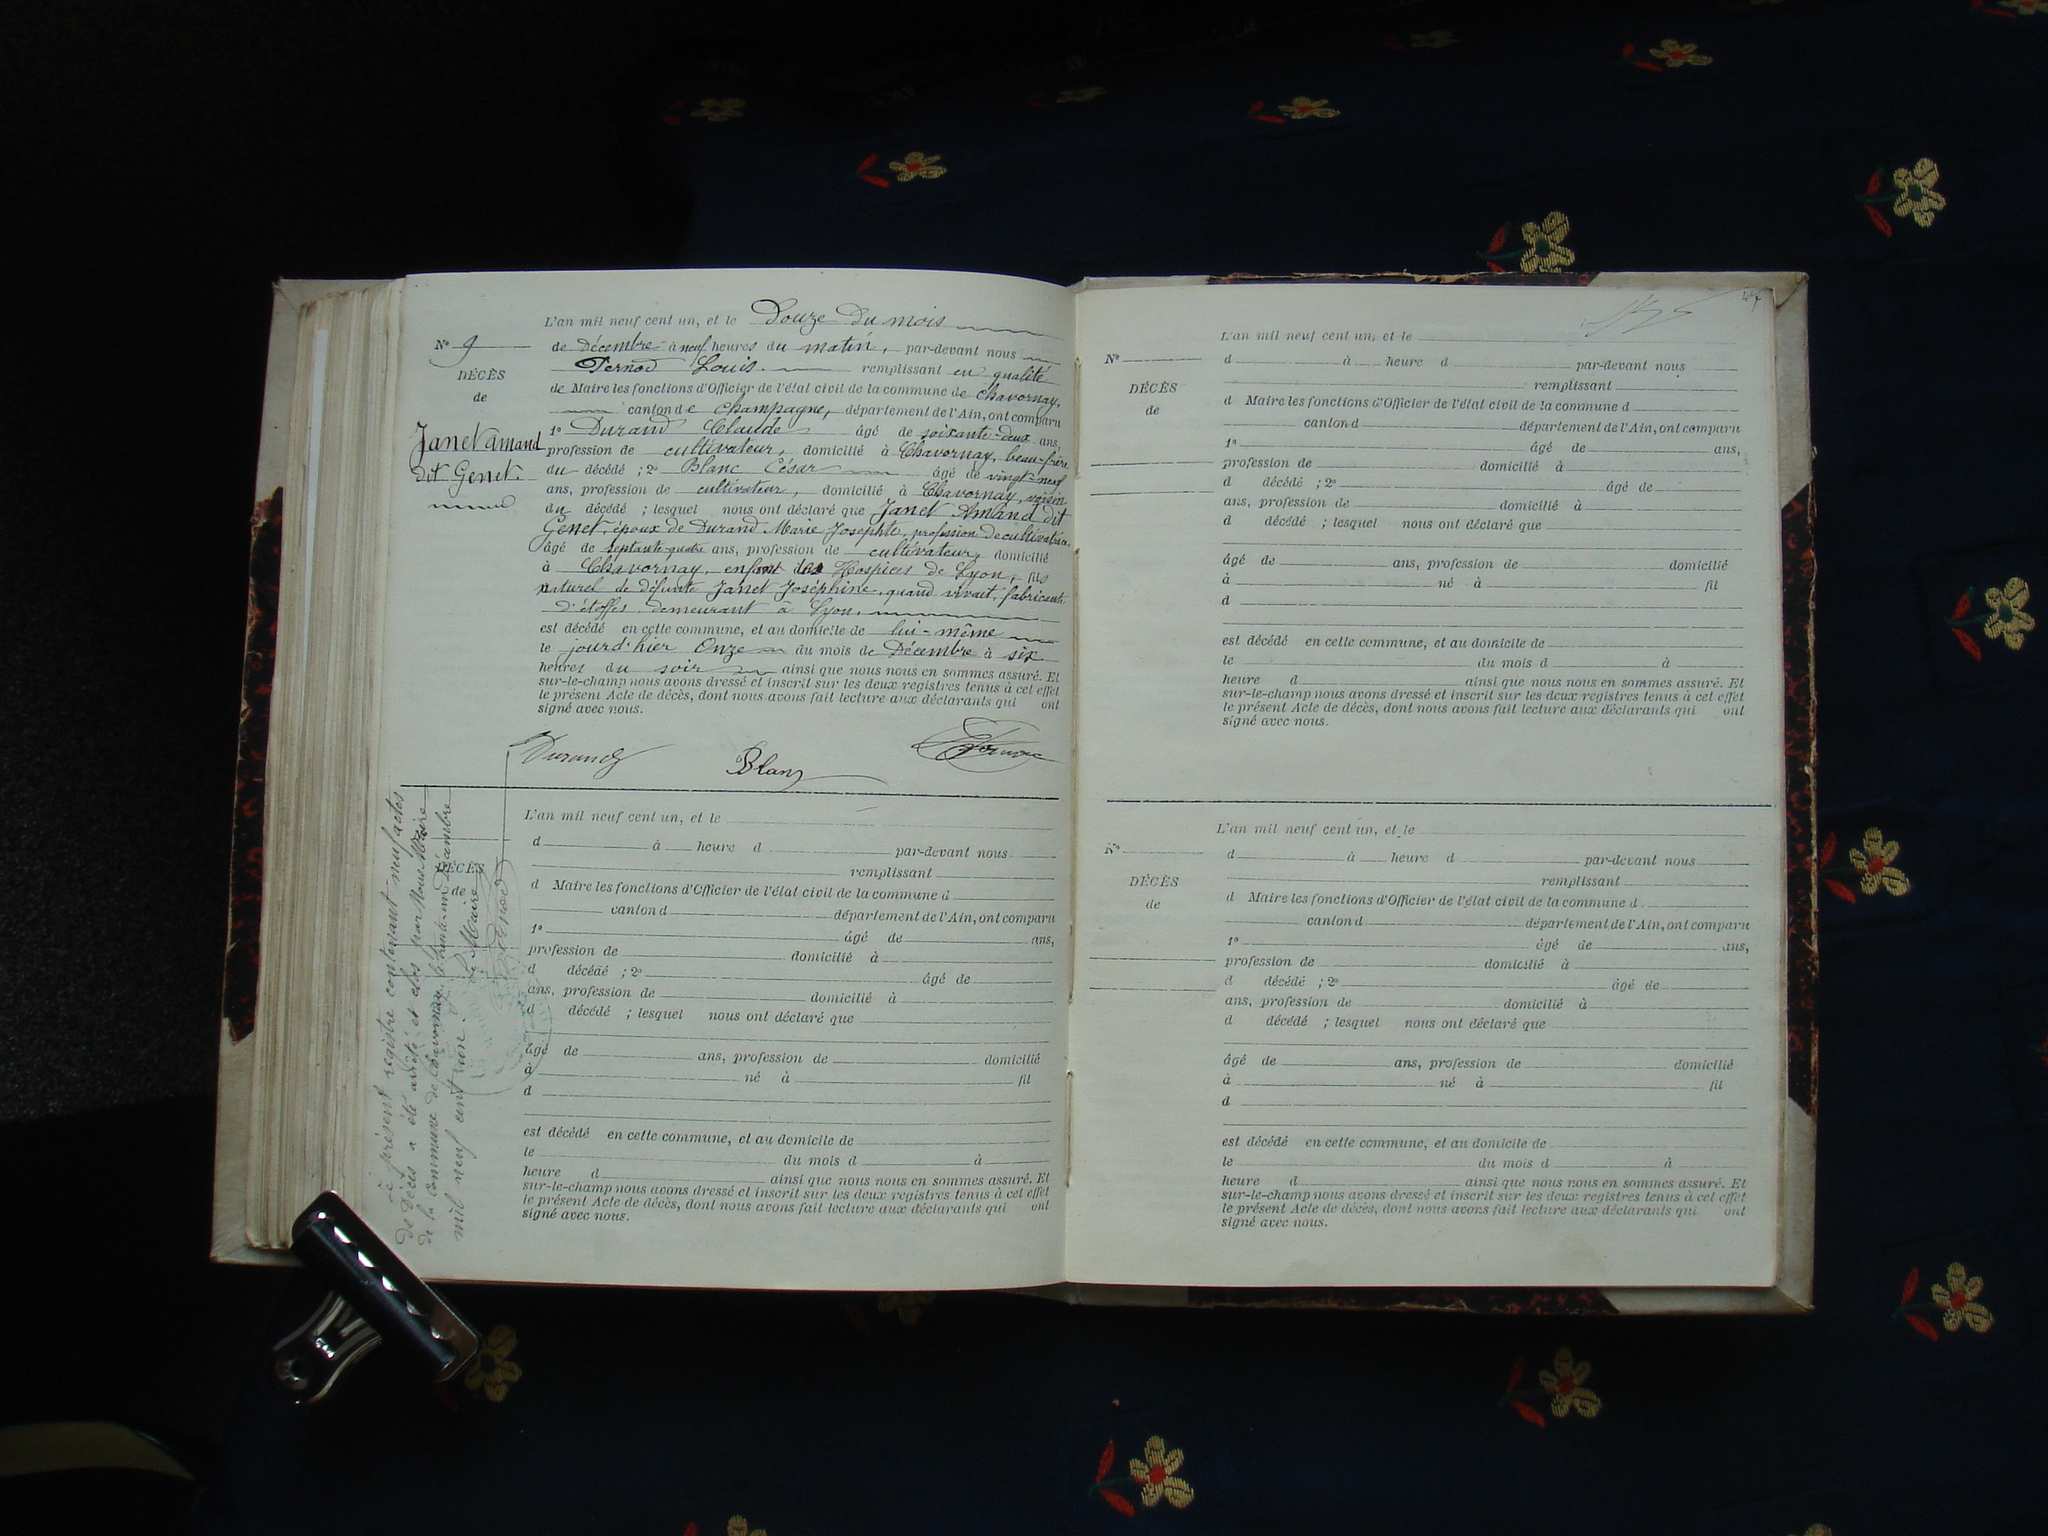 L'an mil neuf cent un, et le Douze du mois
de Décembre à neuf heures du matin, par-devant nous
Pernod Louis. remplissant en qualité
de Maire les fonctions d'Officier de l'état civil de la commune de Chavornay,
canton de Champagne, département de l'Ain, ont comparu
1º Durand Claude âgé de soixante-deux ans,
profession de cultivateur, domicilié à Chavornay, beau-frère
du décédé ; 2º Blanc César âgé de vingt-neuf
ans, profession de cultivateur, domicilié à Chavornay, voisin
du décédé ; lesquel nous ont déclaré que Janet Amand dit
Genet, époux de Durand Marie Josephte, profession de cultivatrice,
âgé de septante-quatre ans, profession de cultivateur, domicilié
à Chavornay, enfant des Hospices de Lyon, fils
naturel de défunte Janet Joséphine, quand vivait, fabricante
d'étoffes demeurant à Lyon.
est décédé en cette commune, et au domicile de lui-même
le jourd'hier Onze du mois de Décembre à six
heures du soir ainsi que nous nous en sommes assuré. Et
sur-le-champ nous avons dressé et inscrit sur les deux registres tenus à cet effet
le présent Acte de décès, dont nous avons fait lecture aux déclarants qui ont
signé avec nous.
Nº 9
DÉCÈS
de
Janet Amand
dit Genet.
Durand
Blanc
Pernod
Le présent registre contenant neuf actes
de Décès a été arrêté et clos par Nous Maire
de la Commune de Chavornay, le trente-un Décembre
mil neuf cent un.
Le Maire
Pernod
DÉCÈS
de
L'an mil neuf cent un, et le
d à heure d par-devant nous
remplissant
d Maire les fonctions d'Officier de l'état civil de la commune d
canton d département de l'Ain, ont comparu
1º âgé de ans,
profession de domicilié à
d décédé ; 2º âgé de
ans, profession de domicilié à
d décédé ; lesquel nous ont déclaré que
âgé de ans, profession de domicilié
à né à fil
d
est décédé en cette commune, et au domicile de
le du mois d à
heure d ainsi que nous nous en sommes assuré. Et
sur-le-champ nous avons dressé et inscrit sur les deux registres tenus à cet effet
le présent Acte de décès, dont nous avons fait lecture aux déclarants qui ont
signé avec nous.
Nº
DÉCÈS
de
L'an mil neuf cent un, et le
d à heure d par-devant nous
remplissant
d Maire les fonctions d'Officier de l'état civil de la commune d
canton d département de l'Ain, ont comparu
1º âgé de ans,
profession de domicilié à
d décédé ; 2º âgé de
ans, profession de domicilié à
d décédé ; lesquel nous ont déclaré que
âgé de ans, profession de domicilié
à né à fil
d
est décédé en cette commune, et au domicile de
le du mois d à
heure d ainsi que nous nous en sommes assuré. Et
sur-le-champ nous avons dressé et inscrit sur les deux registres tenus à cet effet
le présent Acte de décès, dont nous avons fait lecture aux déclarants qui ont
signé avec nous.
Nº
DÉCÈS
de
L'an mil neuf cent un, et le
d à heure d par-devant nous
remplissant
d Maire les fonctions d'Officier de l'état civil de la commune d
canton d département de l'Ain, ont comparu
1º âgé de ans,
profession de domicilié à
d décédé ; 2º âgé de
ans, profession de domicilié à
d décédé ; lesquel nous ont déclaré que
âgé de ans, profession de domicilié
à né à fil
d
est décédé en cette commune, et au domicile de
le du mois d à
heure d ainsi que nous nous en sommes assuré. Et
sur-le-champ nous avons dressé et inscrit sur les deux registres tenus à cet effet
le présent Acte de décès, dont nous avons fait lecture aux déclarants qui ont
signé avec nous.